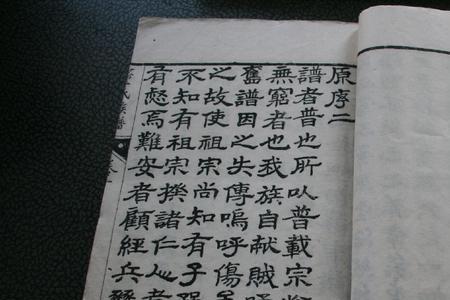 原序二
譜者普也所以普載宗
無窮者也我族自献賊
舊譜因之失傳嗚呼傷
之故使祖宗尚知有子
不知有祖宗揆諸仁心者
有愸焉難安者顧經兵燹
氏族譜